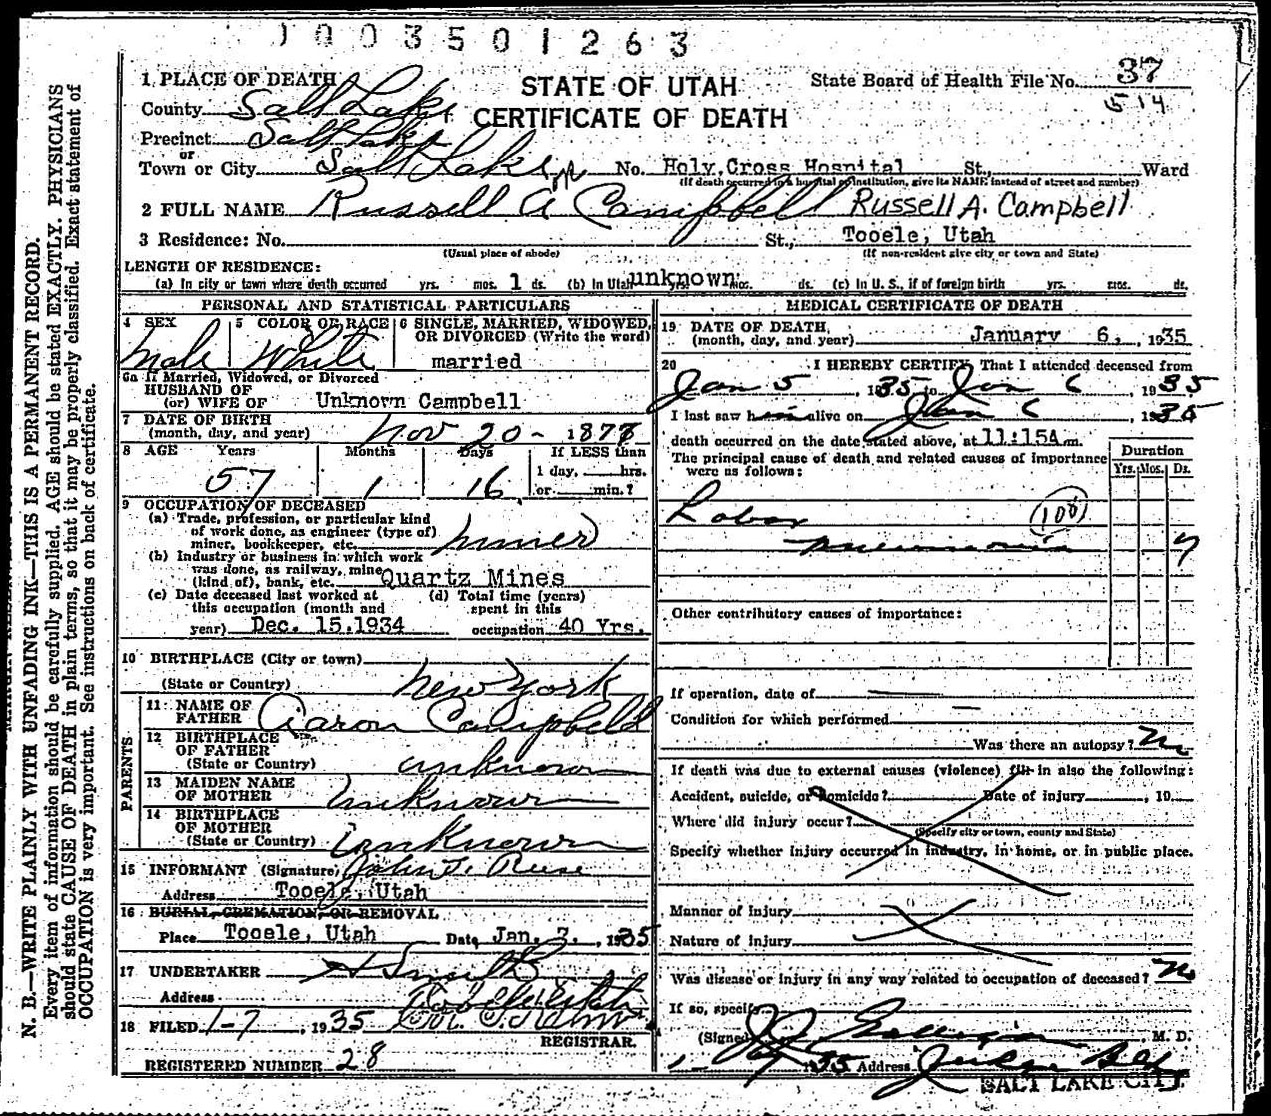 1003501263
1 PLACE OF DEATH
STATE OF UTAH
CERTIFICATE OF DEATH
State Board of Health File No. 37
514
County Salt Lake
Precinct Salt Lake
or
Town or City Salt Lake No. Holy Cross Hospital St., Ward
(If death occurred in a hospital or institution, give its NAME instead of street and number)
2 FULL NAME Russell A Campbell Russell A. Campbell
3 Residence: No. St., Tooele, Utah
(Usual place of abode) (If non-resident give city or town and State)
LENGTH OF RESIDENCE:
(a) In city or town where death occurred yrs. mos. 1 ds. (b) In Utah unknown yrs. mos. ds. (c) In U. S., if of foreign birth yrs. mos. ds.
PERSONAL AND STATISTICAL PARTICULARS
4 SEX
Male
5 COLOR OR RACE
White
6 SINGLE, MARRIED, WIDOWED, OR DIVORCED (Write the word)
married
6a If Married, Widowed, or Divorced
HUSBAND OF
(or) WIFE OF Unknown Campbell
7 DATE OF BIRTH
(month, day, and year) Nov 20 - 1877
8 AGE Years Months Days If LESS than
57 1 16 1 day, hrs.
or min.?
9 OCCUPATION OF DECEASED
(a) Trade, profession, or particular kind
of work done, as engineer (type of)
miner, bookkeeper, etc. Miner
(b) Industry or business in which work
was done, as railway, mine
(kind of), bank, etc. Quartz Mines
(c) Date deceased last worked at
this occupation (month and
year) Dec. 15, 1934
(d) Total time (years)
spent in this
occupation 40 Yrs.
10 BIRTHPLACE (City or town)
(State or Country) New York
PARENTS
11 NAME OF
FATHER Aaron Campbell
12 BIRTHPLACE
OF FATHER
(State or Country) unknown
13 MAIDEN NAME
OF MOTHER Unknown
14 BIRTHPLACE
OF MOTHER
(State or Country) Unknown
15 INFORMANT (Signature) John T. Reese
Address Tooele, Utah
16 BURIAL, CREMATION, OR REMOVAL
Place Tooele, Utah Date Jan. 7, 1935
17 UNDERTAKER
Address Tooele Utah
18 FILED 1-7, 1935
REGISTRAR.
REGISTERED NUMBER 28
MEDICAL CERTIFICATE OF DEATH
19 DATE OF DEATH,
(month, day, and year) January 6, 1935
20 I HEREBY CERTIFY, That I attended deceased from
Jan 5, 1935 to Jan 6 1935
I last saw him alive on Jan 6 1935
death occurred on the date stated above, at 11:15A m.
The principal cause of death and related causes of importance
were as follows:
Duration
Yrs. Mos. Ds.
Lobar 108
pneumonia 7
Other contributory causes of importance:
If operation, date of
Condition for which performed
Was there an autopsy? No
If death was due to external causes (violence) fill in also the following:
Accident, suicide, or homicide? Date of injury , 19
Where did injury occur?
(Specify city or town, county and State)
Specify whether injury occurred in industry, in home, or in public place.
Manner of injury
Nature of injury
Was disease or injury in any way related to occupation of deceased? No
If so, specify
(Signed) M. D.
1-7, 1935 Address Judge Bldg
SALT LAKE CITY
N. B.—WRITE PLAINLY WITH UNFADING INK—THIS IS A PERMANENT RECORD.
Every item of information should be carefully supplied. AGE should be stated EXACTLY. PHYSICIANS
should state CAUSE OF DEATH in plain terms, so that it may be properly classified. Exact statement of
OCCUPATION is very important. See instructions on back of certificate.